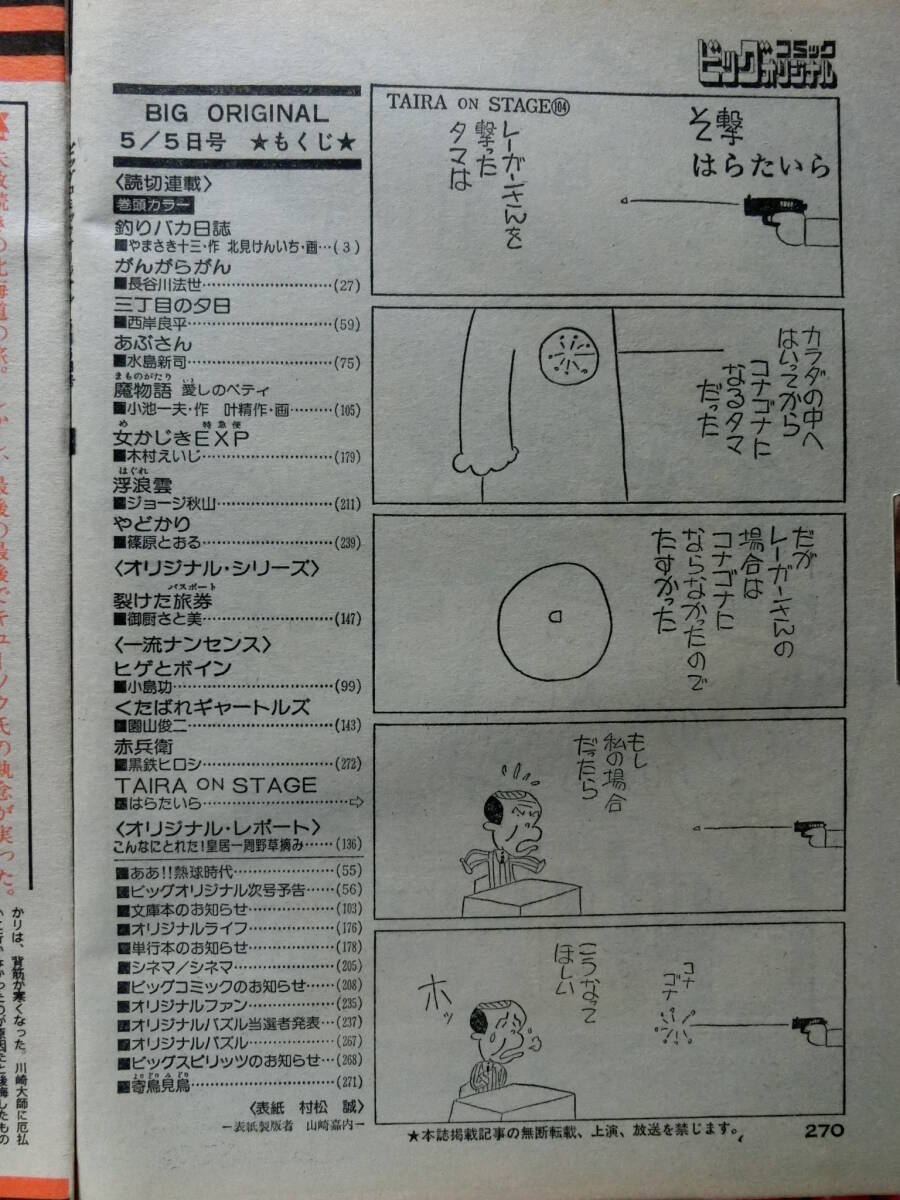 ビッグコミックオリジナル
BIG ORIGINAL
5/5日号 ★もくじ★
〈読切連載〉
巻頭カラー
釣りバカ日誌
■やまさき十三・作 北見けんいち・画…(3)
がんがらがん
■長谷川法世…(27)
三丁目の夕日
■西岸良平…(59)
あぶさん
■水島新司…(75)
まものがたり
魔物語 愛しのベティ
■小池一夫・作 叶精作・画…(105)
め 特急便
女かじきEXP
■木村えいじ…(179)
はぐれ
浮浪雲
■ジョージ秋山…(211)
やどかり
■篠原とおる…(239)
〈オリジナル・シリーズ〉
パスポート
裂けた旅券
■御厨さと美…(147)
〈一流ナンセンス〉
ヒゲとボイン
■小島功…(99)
くたばれギャートルズ
■園山俊二…(143)
赤兵衛
■黒鉄ヒロシ…(272)
TAIRA ON STAGE
■はらたいら…⇨
〈オリジナル・レポート〉
こんなにとれた!皇居一周野草摘み…(136)
■ああ!!熱球時代…(55)
■ビッグオリジナル次号予告…(56)
■文庫本のお知らせ…(103)
■オリジナルライフ…(176)
■単行本のお知らせ…(178)
■シネマ/シネマ…(205)
■ビッグコミックのお知らせ…(208)
■オリジナルファン…(235)
■オリジナルパズル当選者発表…(237)
■オリジナルパズル…(267)
■ビッグスピリッツのお知らせ…(268)
よりどりみどり
■寄鳥見鳥…(271)
〈表紙 村松 誠〉
―表紙製版者 山崎嘉内―
TAIRA ON STAGE 104
そ撃
はらたいら
レーガンさんを
撃った
タマは
カラダの中へ
はいってから
コナゴナに
なるタマ
だった
だが
レーガンさんの
場合は
コナゴナに
ならなかったので
たすかった
もし
私の場合
だったら
コナ
ゴナ
こうなって
ほしい
ホッ
★本誌掲載記事の無断転載、上演、放送を禁じます。
270
かりは、背筋が寒くなった。川崎大師に厄払